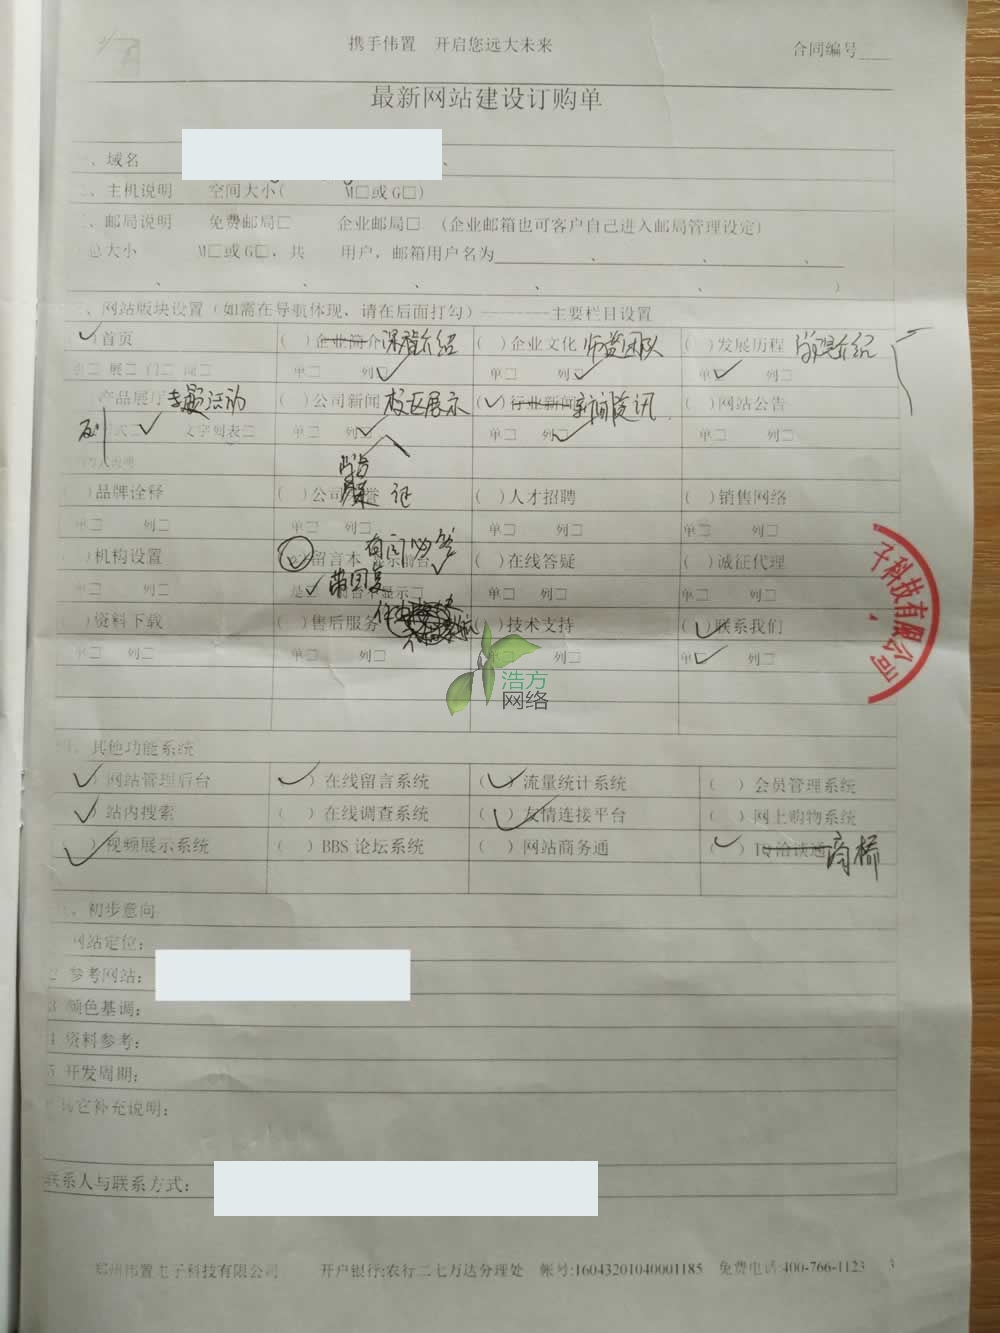 携手伟置 开启您远大未来 合同编号
最新网站建设订购单
、域名 、
二、主机说明 空间大小( M□或G□)
三、邮局说明 免费邮局□ 企业邮局□ (企业邮箱也可客户自己进入邮局管理设定)
总大小 M□或G□，共 用户，邮箱用户名为 、 、
、 、 、 、 )
、网站版块设置（如需在导航体现，请在后面打勾）————主要栏目设置
✓首页 ( )企业简介 课程介绍 ( )企业文化 师资团队 ( )发展历程 学观介绍
□ 展□ 门□ □ 单□ 列✓ 单□ 列✓ 单✓ 列□
产品展厅 专题活动 ( )公司新闻 校区展示 (✓)行业新闻 新闻资讯 ( )网站公告
列 式□ ✓ 文字列表□ 单□ 列✓ 单□ 列✓ 单□ 列□
( )品牌诠释 ( )公司 誉 证 ( )人才招聘 ( )销售网络
单□ 列□ 单□ 列□ 单□ 列□ 单□ 列□
( )机构设置 留言本 显示前台 有问必答 ( )在线答疑 ( )诚征代理
单□ 列□ 是 ✓带回复 前台不显示□ 单□ 列□ 单□ 列□
( )资料下载 ( )售后服务 ( )技术支持 (✓)联系我们
单□ 列□ 单□ 列□ 单□ 列□ 单✓ 列□
浩方
网络
子科技有限公司
、其他功能系统
✓)网站管理后台 ✓)在线留言系统 (✓)流量统计系统 ( )会员管理系统
✓)站内搜索 ( )在线调查系统 (✓)友情连接平台 ( )网上购物系统
✓)视频展示系统 ( )BBS 论坛系统 ( )网站商务通 (✓)TQ洽谈通 商桥
、初步意向
网站定位：
2 参考网站：
3 颜色基调：
4 资料参考：
5 开发周期：
其它补充说明：
联系人与联系方式：
郑州伟置电子科技有限公司 开户银行:农行二七万达分理处 帐号:16043201040001185 免费电话:400-766-1123 3